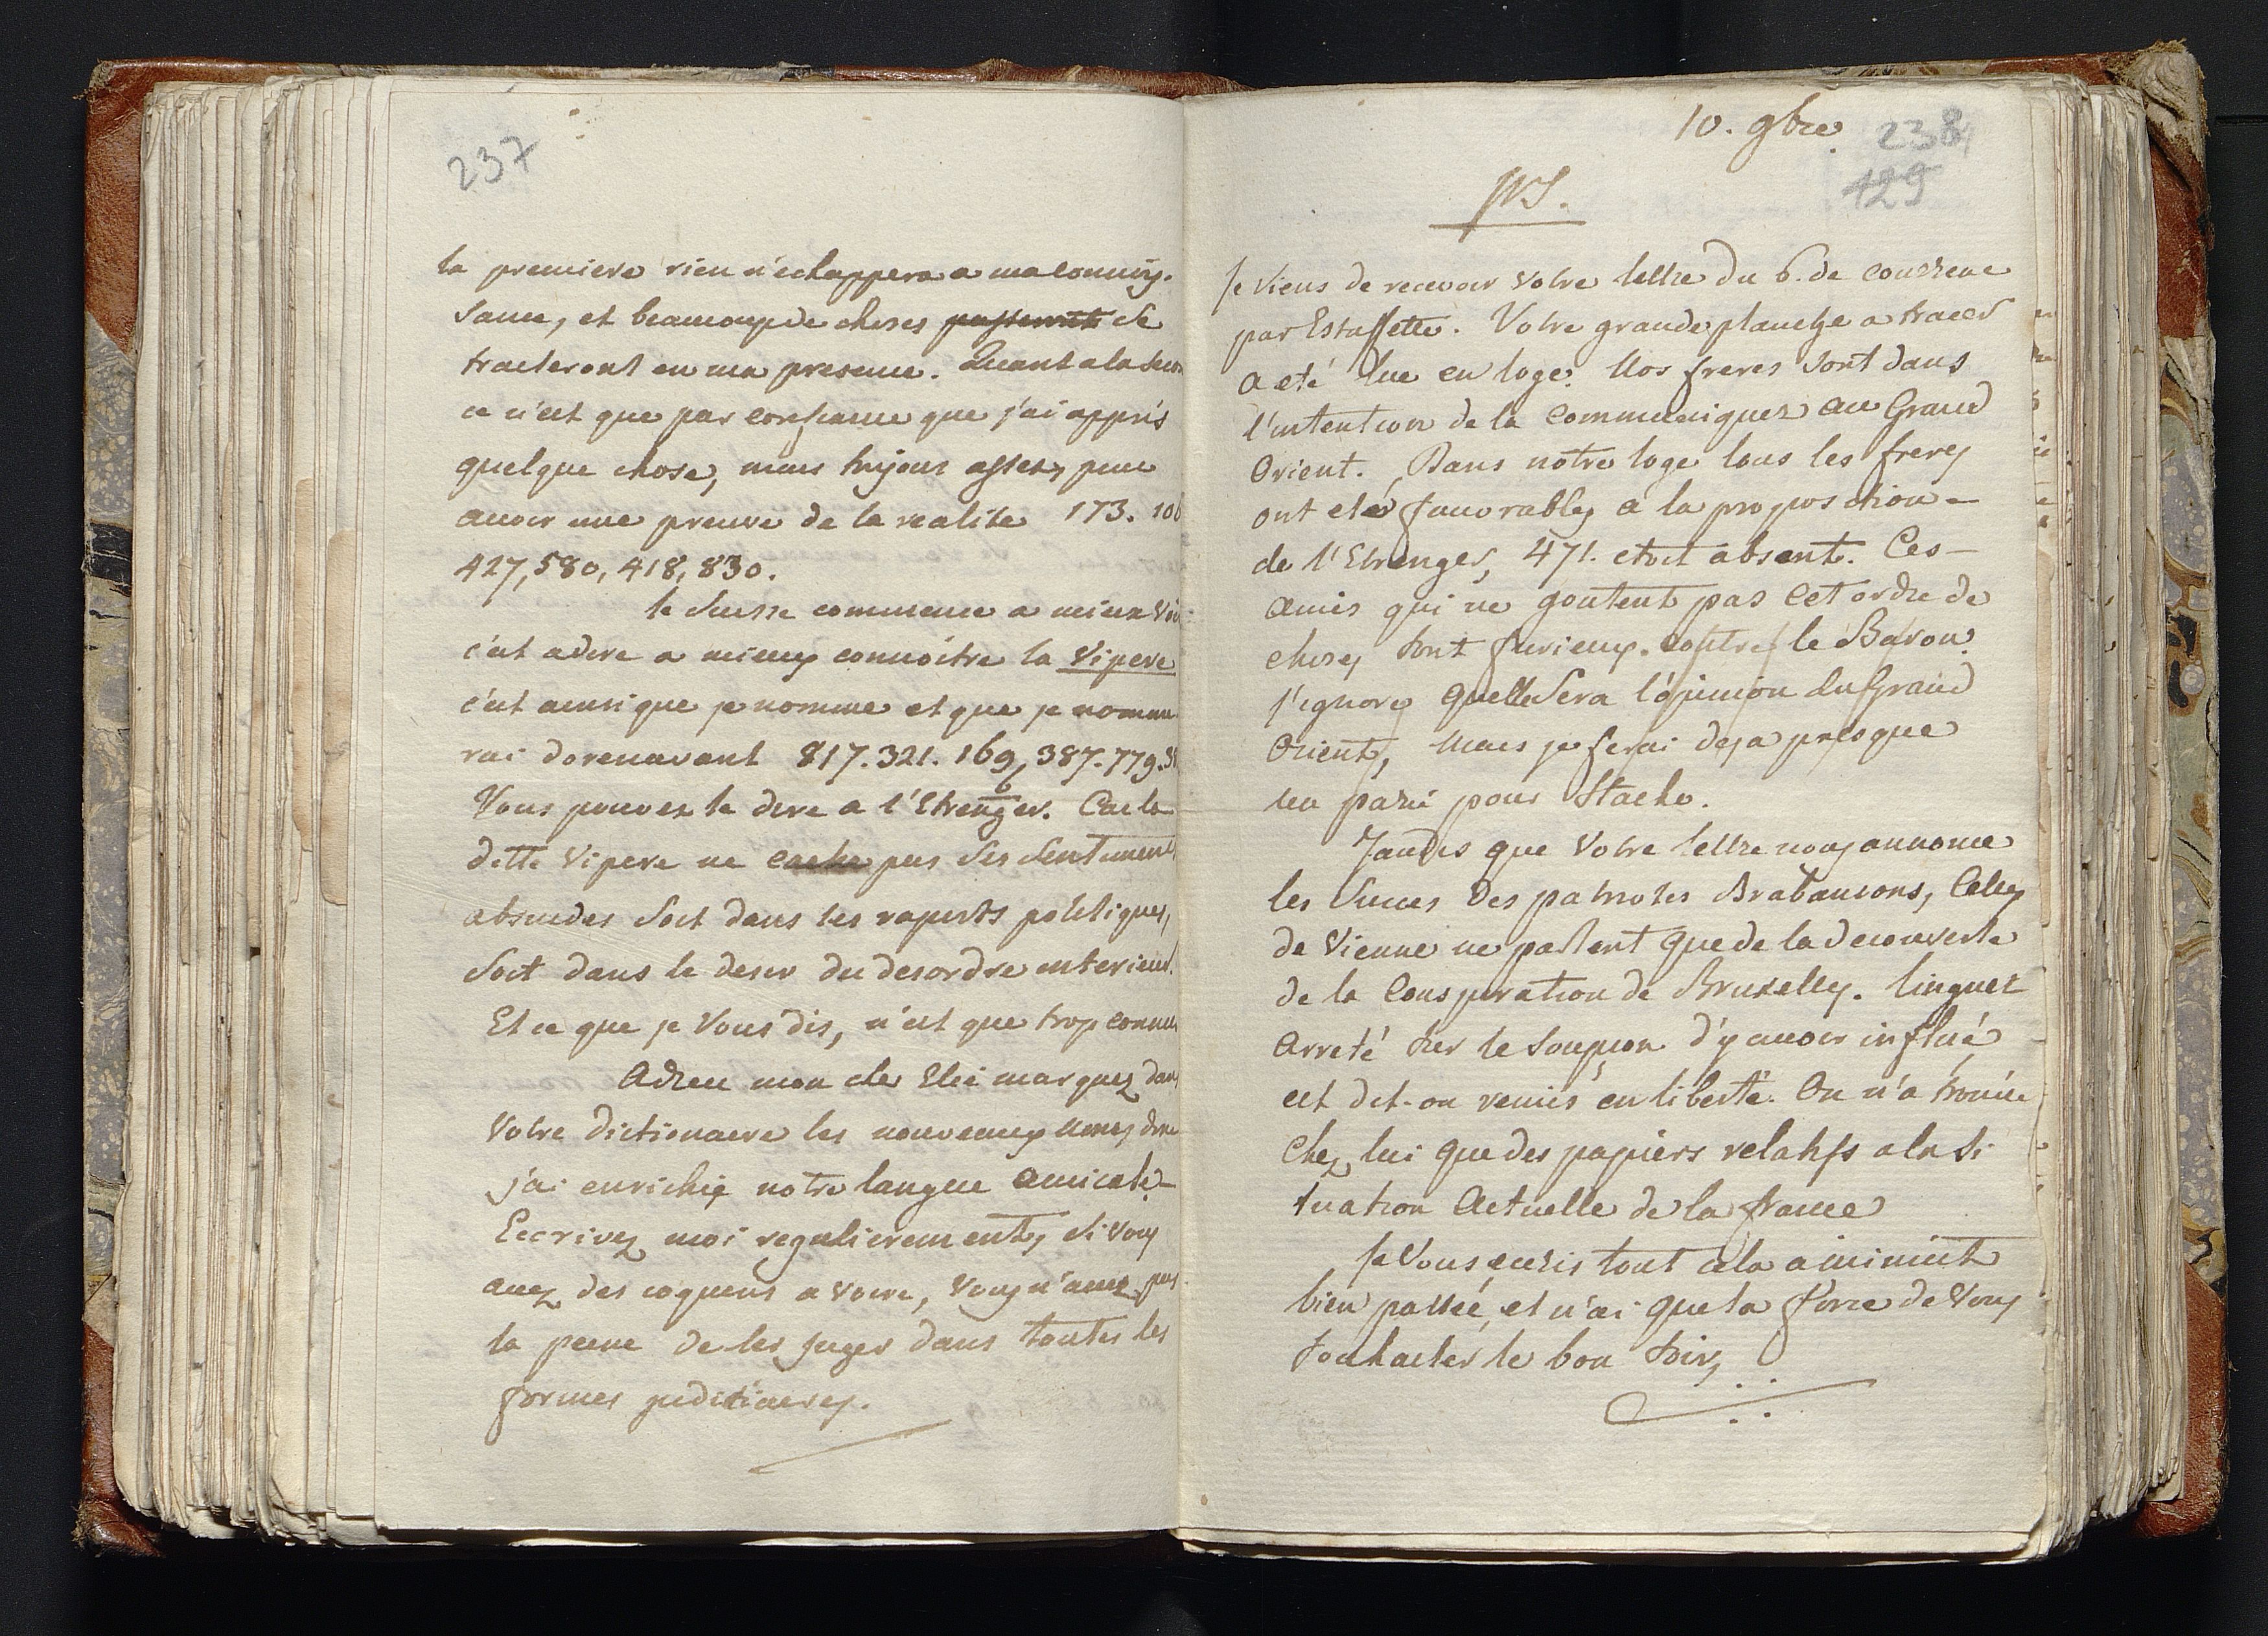 237
la premiere rien n'echappera a ma connois-
sance, et beaucoup de choses passeront se
traiteront en ma presence. Quant a la secon
ce n'est que par confiance que j'ai appris
quelque chose, mais toujours assez pour
avoir une preuve de la realite 173. 106
427, 580, 418, 830.
le Suisse commence a mieux voi
c'est a dire a mieux connoitre la Vipere
c'est ainsi que je nomme et que je nomme
rai dorenavant 817. 321. 169, 387. 779. 3
6
Vous pouvez le dire a l'Etrenger. Car la
ditte Vipere ne cache pas ses sentimens
absurdes soit dans les raports politiques,
soit dans le desir du desordre interieur.
Et ce que je Vous dis, n'est que trop connu
Adieu mon cher Elie marquez dans
Votre dictionaire les nouveaux noms dont
j'ai enrichie notre langue amicale
Ecrivez moi regulierement, si vous
avez des coquins a voir, vous n'avez pas
la peine de les juger dans toutes les
formes judiciaires.
10. 9bre. 238
129
PS.
Je viens de recevoir votre lettre du 6. de courrent
par Estaffette. Votre grande planche a tracer
a eté lue en loge. Nos freres sont dans
l'intention de la communiquer au Grand
Orient. Dans notre loge tous les freres
ont eté favorables a la proposition
de l'Etrenger, 471. etoit absent. Ces
amis qui ne goutent pas cet ordre de
choses sont furieux contre le Baron.
J'ignore quelle sera l'opinion du Grand
Orient, mais je ferai deja presque
un parie pour Stacho.
Tandis que votre lettre nous annonce
les succes des patriotes Brabancons, Celles
de Vienne ne parlent que de la decouverte
de la Conspiration de Bruxelles. Linguet
arreté sur le soupçon d'y avoir influé
est dit-on remis en liberté. On n'a trouvé
chez lui que des papiers relatifs a la si
tuation actuelle de la france
Je Vous ecris tout cela a minuit
bien passée, et n'ai que la force de Vous
souhaiter le bon soir,